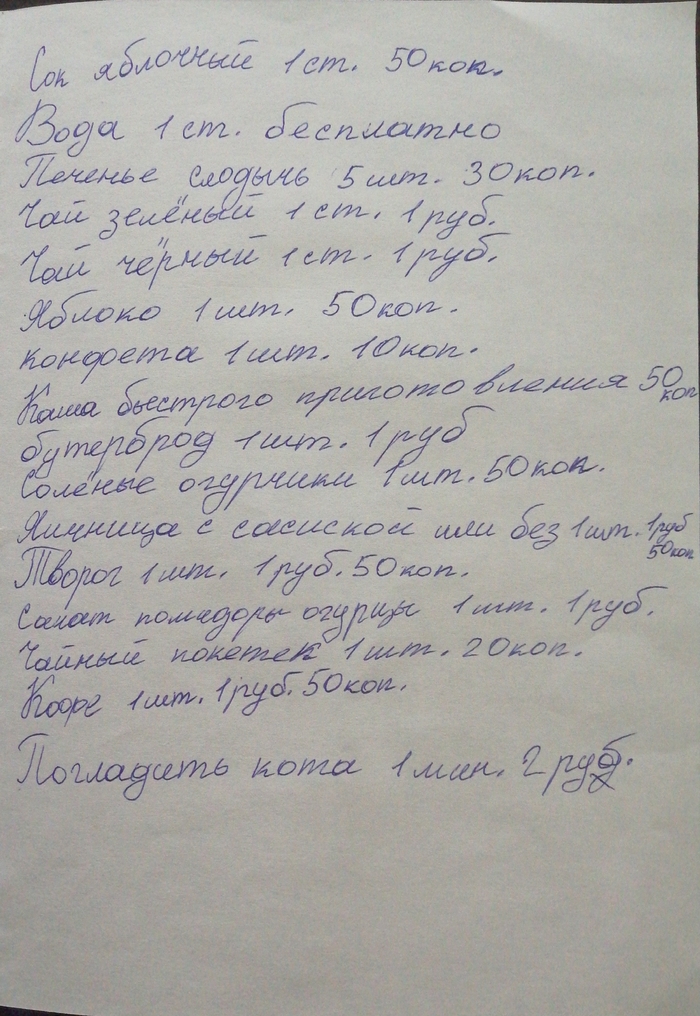 Сок яблочный 1 ст. 50 коп.
Вода 1 ст. бесплатно
Печенье слодычь 5 шт. 30 коп.
Чай зелёный 1 ст. 1 руб.
Чай чёрный 1 ст. 1 руб.
Яблоко 1 шт. 50 коп.
конфета 1 шт. 10 коп.
Каша быстрого приготовления 50 коп
бутерброд 1 шт. 1 руб
Солёные огурчики 1 шт. 50 коп.
Яичница с сасиской или без 1 шт. 1 руб 50 коп
Творог 1 шт. 1 руб. 50 коп.
Салат помидоры огурцы 1 шт. 1 руб.
Чайный покетек 1 шт. 20 коп.
Кофе 1 шт. 1 руб. 50 коп.
Погладить кота 1 мин. 2 руб.